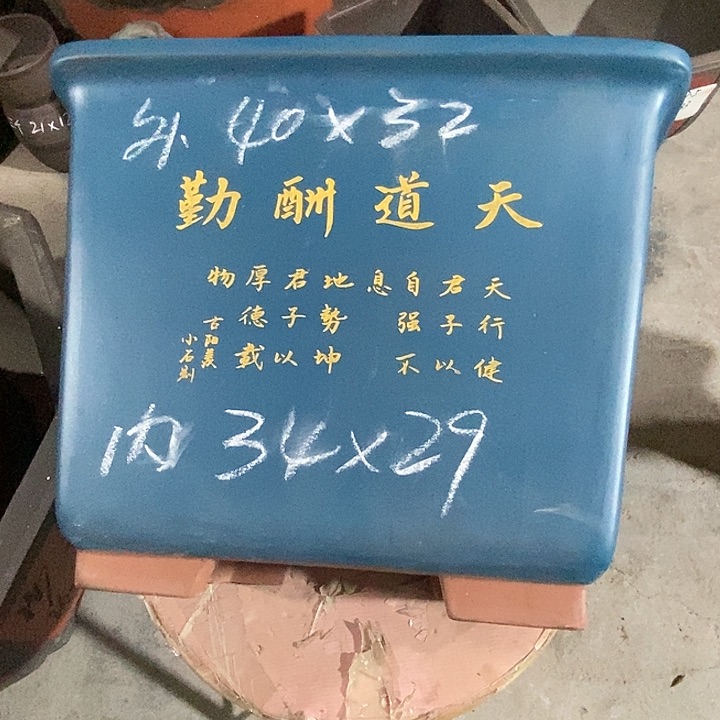 外 40×32
天道酬勤
天行健
君子以
自强不
息
地势坤
君子以
厚德載
物
古阳羡
小石刻
内 34×29